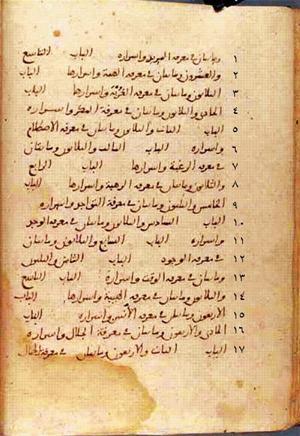 ١ ومايتان في معرفة المريد واسراره الباب التاسع
٢ والعشرون ومايتان في معرفة الهمة واسرارها الباب
٣ الثلاثون ومايتان في معرفة الغربة واسرارها الباب
٤ الحادي والثلاثون ومايتان في معرفة المكر واسراره
٥ الباب الثاني والثلاثون ومايتان في معرفة الاصطلام
٦ واسراره الباب الثالث والثلاثون ومايتان
٧ في معرفة الرغبة واسرارها الباب الرابع
٨ والثلاثون ومايتان في معرفة الرهبة واسرارها الباب
٩ الخامس والثلثون ومايتان في معرفة التواجد واسراره
١٠ الباب السادس والثلثون ومايتان في معرفة الوجد
١١ واسراره الباب السابع والثلاثون ومايتان
١٢ في معرفة الوجود الباب الثامن والثلثون
١٣ ومايتان في معرفة الوقت واسراره الباب التاسع
١٤ والثلاثون ومايتان في معرفة الهيبة واسرارها الباب
١٥ الاربعون ومايتان في معرفة الانس واسراره
١٦ الباب الحادي والاربعون ومايتان في معرفة الجلال واسراره
١٧ الباب الثاني والاربعون ومايتان في معرفة الجمال